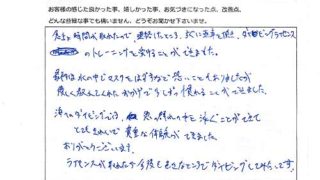 お客様の感じた良かった事、嬉しかった事、お気づきになった点、改善点、
どんな些細な事でも構いません、どうぞお聞かせ下さいませ。
急に時間が取れたので 連絡したところ、すぐに返事を頂き、ダイビングライセンス
のトレーニングを受けることができました。
最初は水の中でマスクをはずすなど 怖いこともありましたが
優しく教えてくれたおかげで少しずつ慣れることができました。
海でのダイビングでは、魚の群れの中を泳ぐことができて
とてもきれいで貴重な体験ができました。
ありがとうございます。
ライセンスが取れたので今後も色々なところでダイビングしてみたいです。